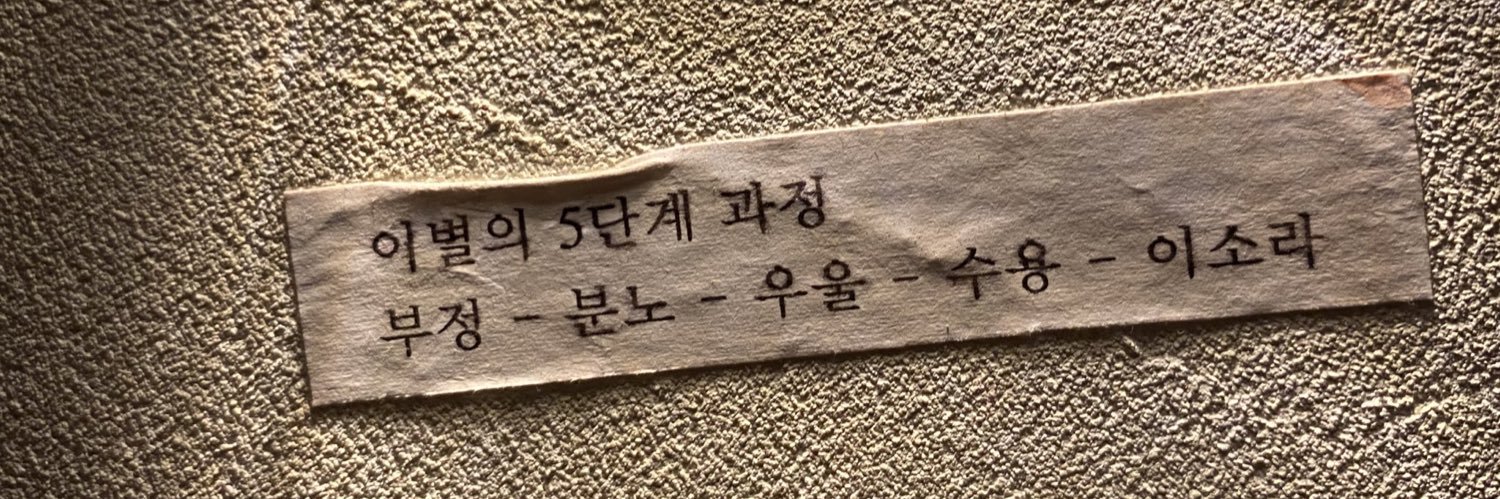 이별의 5단계 과정
부정 - 분노 - 우울 - 수용 - 이소라